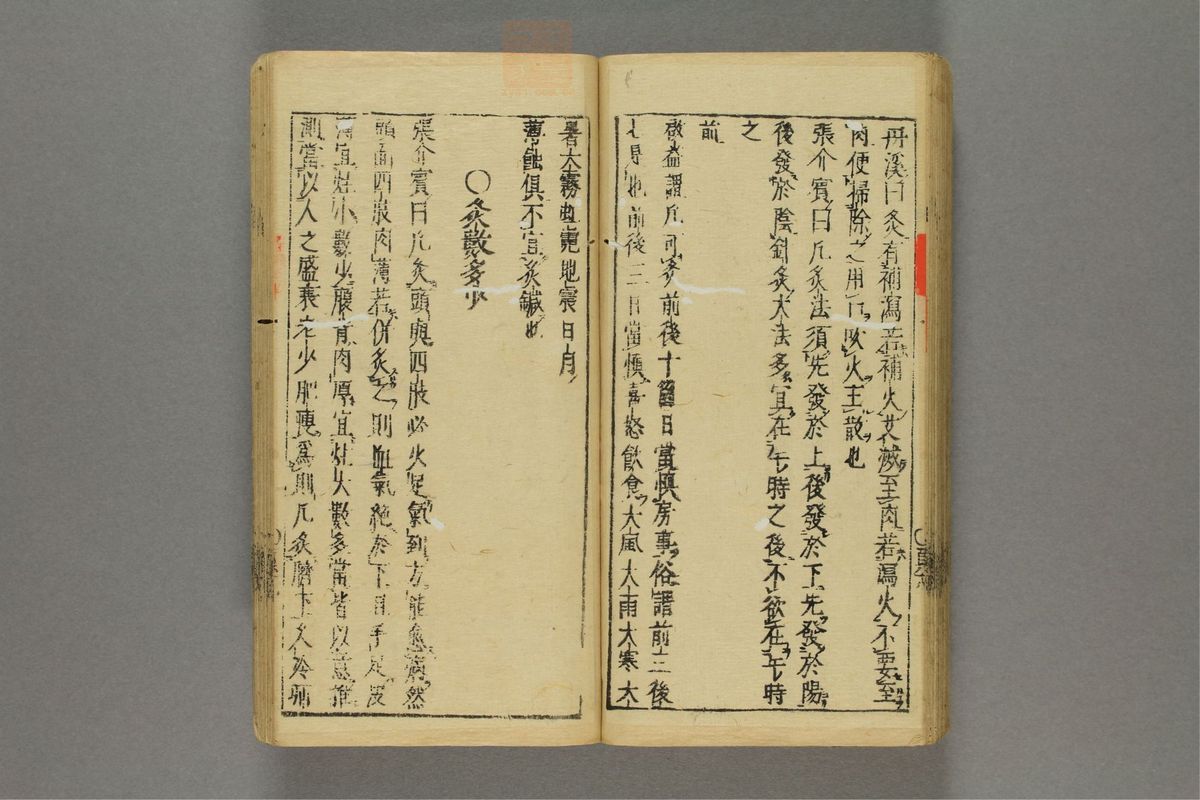 丹溪曰灸有補瀉若補火艾滅至肉若瀉火不要至
肉便掃除之用口吹火主散也
張介賓曰凡灸法須先發於上後發於下先發於陽
後發於陰針灸大法多宜在午時之後不欲在午時
之
前
啟益謂凡可灸前後十箇日當慎房事俗謂前三後
七是也前後三日當慎喜怒飲食大風大雨大寒大
暑大霧虹霓地震日月
薄蝕俱不宜灸鍼也
○灸數多少
張介賓曰凡灸頭與四肢必火足氣到方能愈病然
頭面四肢肉薄若併灸之則血氣絕於下且手足皮
薄宜炷小數少腹背肉厚宜炷大數多當皆以意推
測當以人之盛衰老少肥瘦為則凡灸臍下久冷